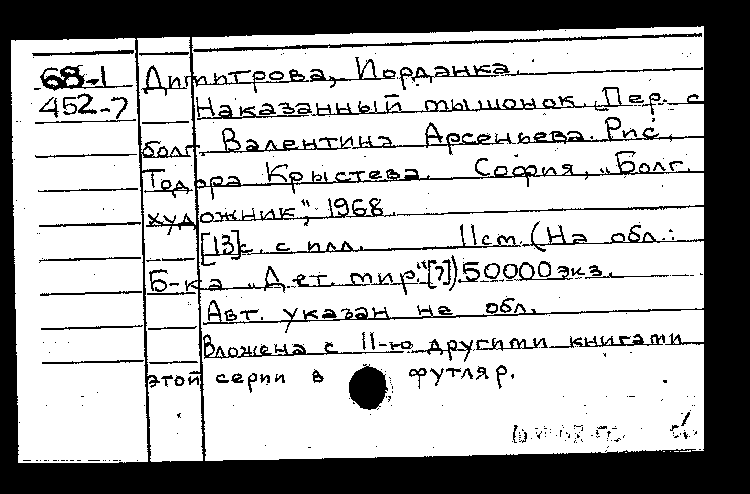 68-1 Димитрова, Йорданка.
452-7 Наказанный мышонок. Пер. с
болг. Валентина Арсеньева. Рис.
Тодора Крыстева. София, „Болг.
художник", 1968.
[13]с. с илл. 11см. (На обл.:
Б-ка „Дет. мир."[7]). 50000 экз.
Авт. указан на обл.
Вложена с 11-ю другими книгами
этой серии в футляр.